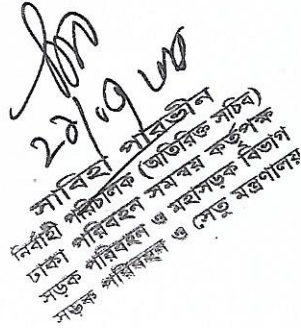 সাবিহা পারভীন
নির্বাহী পরিচালক (অতিরিক্ত সচিব)
ঢাকা পরিবহন সমন্বয় কর্তৃপক্ষ
সড়ক পরিবহন ও মহাসড়ক বিভাগ
সড়ক পরিবহন ও সেতু মন্ত্রণালয়